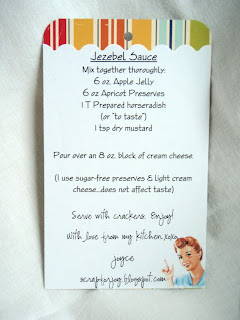 Jezebel Sauce
Mix together thoroughly:
6 oz. Apple Jelly
6 oz Apricot Preserves
1 T Prepared horseradish
(or "to taste")
1 tsp dry mustard
Pour over an 8 oz. block of cream cheese.
(I use sugar-free preserves & light cream
cheese...does not affect taste)
Serve with crackers. Enjoy!
With love from my kitchen, xoxo
Joyce
scrapforjoy.blogspot.com